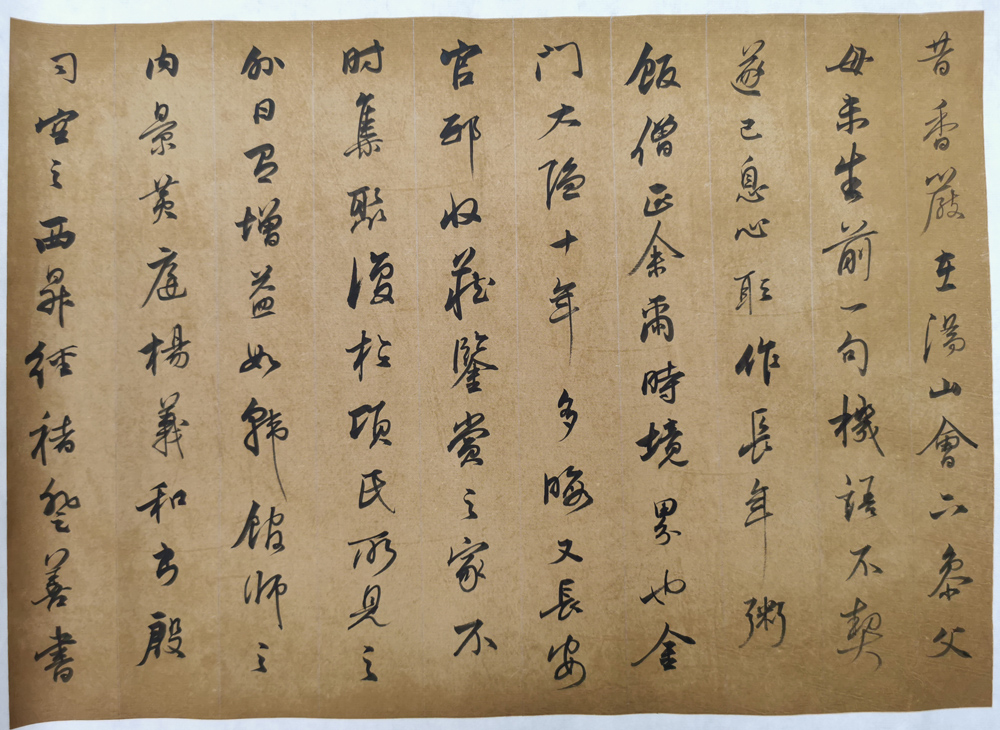 昔香嚴在溈山會下參父
母未生前一句機語不契
遂已息心耻作長年粥
飯僧正余爾時境界也金
门大隐十年多晦又長安
官邸收藏鑒賞之家不
时集聚復於項氏所見之
外日有增益如韓館師之
内景黄庭楊義和书殷
司空之西昇經褚登善書